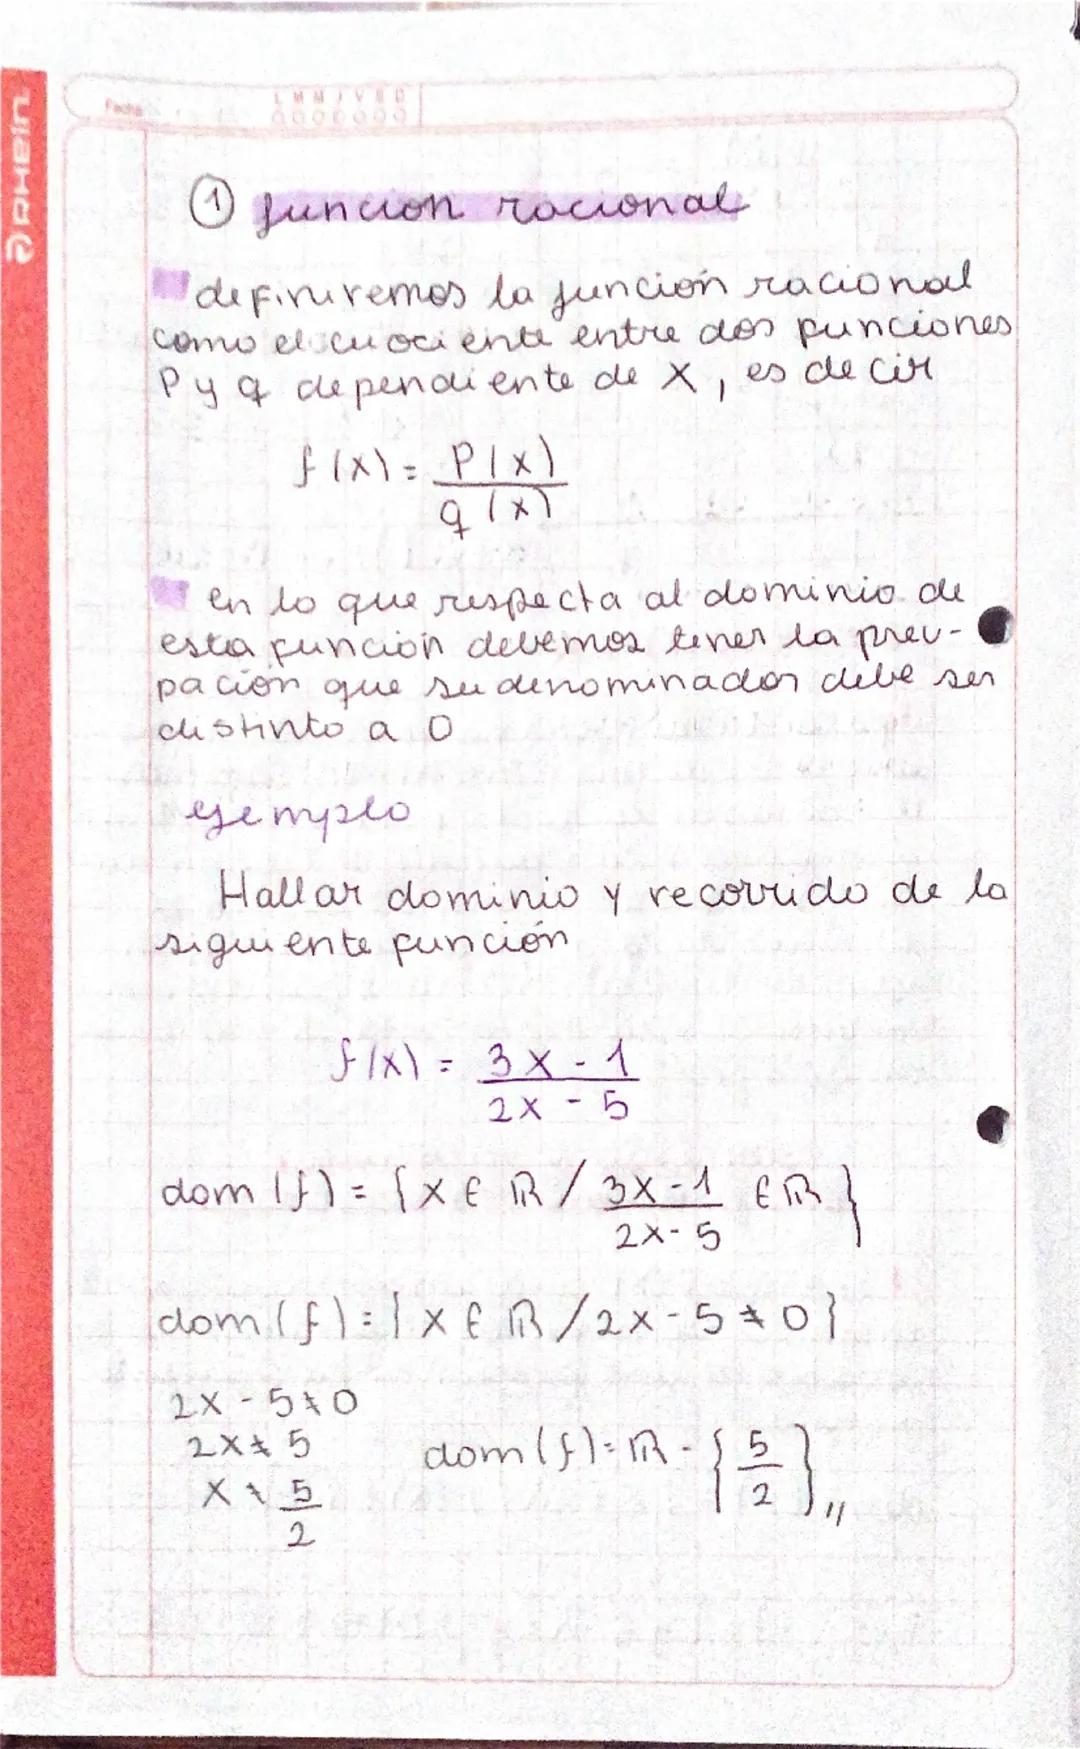 RHEIN
Fecha
L M M J V S D
① función racional
definiremos la función racional
como el cuociente entre dos funciones
P y q dependiente de x, es decir
f(x) = P(x)
q(x)
en lo que respecta al dominio de
esta función debemos tener la preu-
pación que su denominador debe ser
distinto a 0
ejemplo
Hallar dominio y recorrido de la
siguiente función
f(x) = 3x - 1
2x - 5
dom (f) = {x ∈ ℝ / 3x-1 ∈ ℝ}
2x-5
dom (f) = {x ∈ ℝ / 2x-5 ≠ 0}
2x - 5 ≠ 0
2x ≠ 5
dom (f) = ℝ - {5
2}
x ≠ 5
2